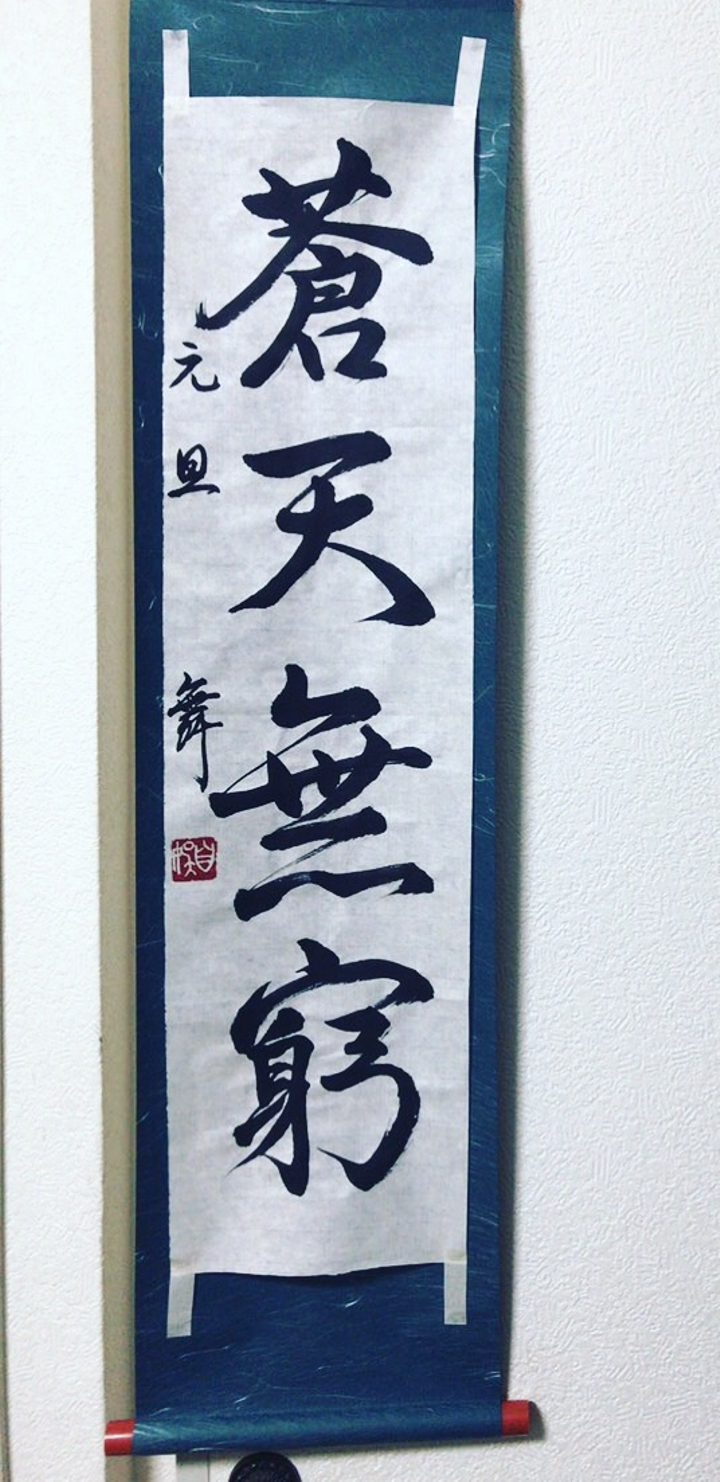 蒼天無窮
元旦
舞